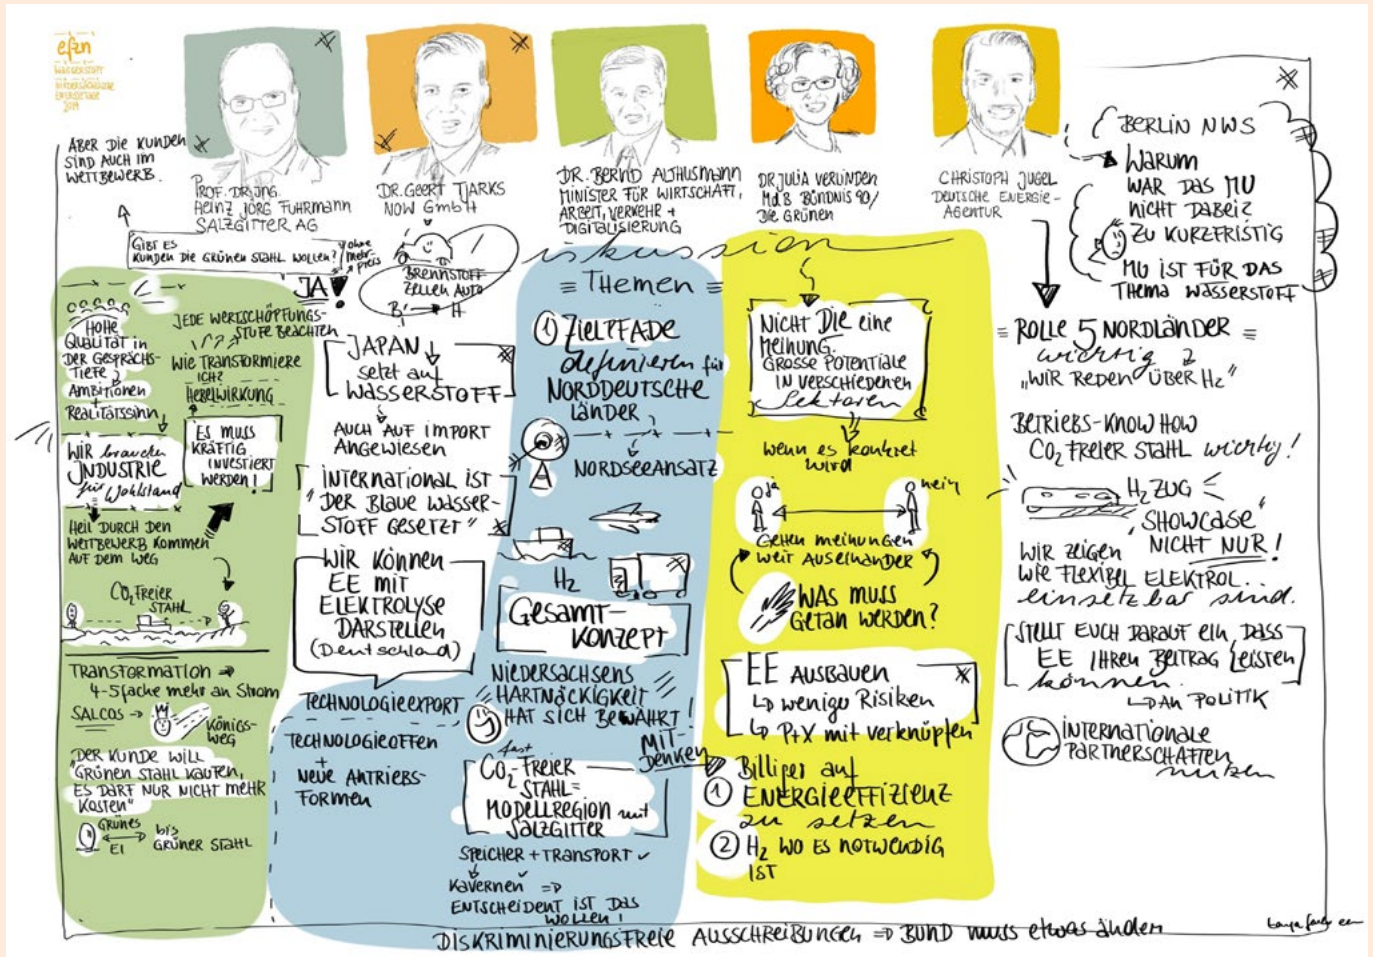 efzn
WASSERSTOFF
NIEDERSÄCHSISCHE
ENERGIETAGE
2019
ABER DIE KUNDEN
SIND AUCH IM
WETTBEWERB.
PROF. DR. ING.
HEINZ JÖRG FUHRMANN
SALZGITTER AG
DR. GEERT TJARKS
NOW GmbH
DR. BERND ALTHUSMANN
MINISTER FÜR WIRTSCHAFT,
ARBEIT, VERKEHR +
DIGITALISIERUNG
DR JULIA VERLINDEN
MdB BÜNDNIS 90/
Die GRÜNEN
CHRISTOPH JUGEL
DEUTSCHE ENERGIE-
AGENTUR
Diskussion
GIBT ES
KUNDEN DIE GRÜNEN STAHL WOLLEN?
ohne
mehr-
preis
JA!
HOHE
QUALITÄT IN
DER GESPRÄCHS-
TIEFE
AMBITIONEN
+
REALITÄTSSINN
JEDE WERTSCHÖPFUNGS-
STUFE BEACHTEN
WIE TRANSFORMIERE
ICH?
HEBELWIRKUNG
WIR brauchen
INDUSTRIE
für Wohlstand
ES MUSS
KRÄFTIG
INVESTIERT
WERDEN!
HEIL DURCH DEN
WETTBEWERB KOMMEN
AUF DEM WEG
CO2 FREIER
STAHL
TRANSFORMATION ⇒
4-5fache mehr an Strom
SALCOS →
KÖNIGS-
WEG
"DER KUNDE WILL
GRÜNEN STAHL KAUFEN,
ES DARF NUR NICHT MEHR
KOSTEN"
GRÜNES
EI
bis
GRÜNER STAHL
BRENNSTOFF
ZELLEN AUTO
B → H
JAPAN
setzt auf
WASSERSTOFF
AUCH AUF IMPORT
ANGEWIESEN
INTERNATIONAL IST
"DER BLAUE WASSER-
STOFF GESETZT"
WIR KÖNNEN
EE MIT
ELEKTROLYSE
DARSTELLEN
(Deutschland)
TECHNOLOGIEEXPORT
TECHNOLOGIEOFFEN
+
NEUE ANTRIEBS-
FORMEN
= THEMEN =
① ZIELPFADE
definieren für
NORDDEUTSCHE
LÄNDER
NORDSEEANSATZ
H2
GESAMT-
KONZEPT
NIEDERSACHSENS
HARTNÄCKIGKEIT
HAT SICH BEWÄHRT!
fast
CO2-FREIER
STAHL=
MODELLREGION mit
SALZGITTER
SPEICHER + TRANSPORT ✓
KAVERNEN ⇒
ENTSCHEIDENT IST DAS
WOLLEN!
NICHT DIE eine
MEINUNG.
GROSSE POTENTIALE
IN VERSCHIEDENEN
Sektoren
wenn es konkret
wird
ja
nein
GEHEN MEINUNGEN
WEIT AUSEINANDER
WAS MUSS
GETAN WERDEN?
EE AUSBAUEN
↳ weniger Risiken
↳ PtX mit verknüpfen
MIT-
DENKEN
Billiger auf
① ENERGIEEFFIZIENZ
zu setzen
② H2 WO ES NOTWENDIG
IST
BERLIN NWS
WARUM
WAR DAS MU
NICHT DABEI?
ZU KURZFRISTIG
MU IST FÜR DAS
THEMA WASSERSTOFF
= ROLLE 5 NORDLÄNDER =
wichtig
"WIR REDEN ÜBER H2"
BETRIEBS-KNOW HOW
CO2 FREIER STAHL wichtig!
H2 ZUG
"SHOWCASE"
NICHT NUR!
WIR ZEIGEN
WIE FLEXIBEL ELEKTROL..
einsetzbar sind.
STELLT EUCH DARAUF EIN, DASS
EE IHREN BEITRAG LEISTEN
können.
↳ AN POLITIK
INTERNATIONALE
PARTNERSCHAFTEN
nutzen
DISKRIMINIERUNGSFREIE AUSSCHREIBUNGEN ⇒ BUND muss etwas ändern